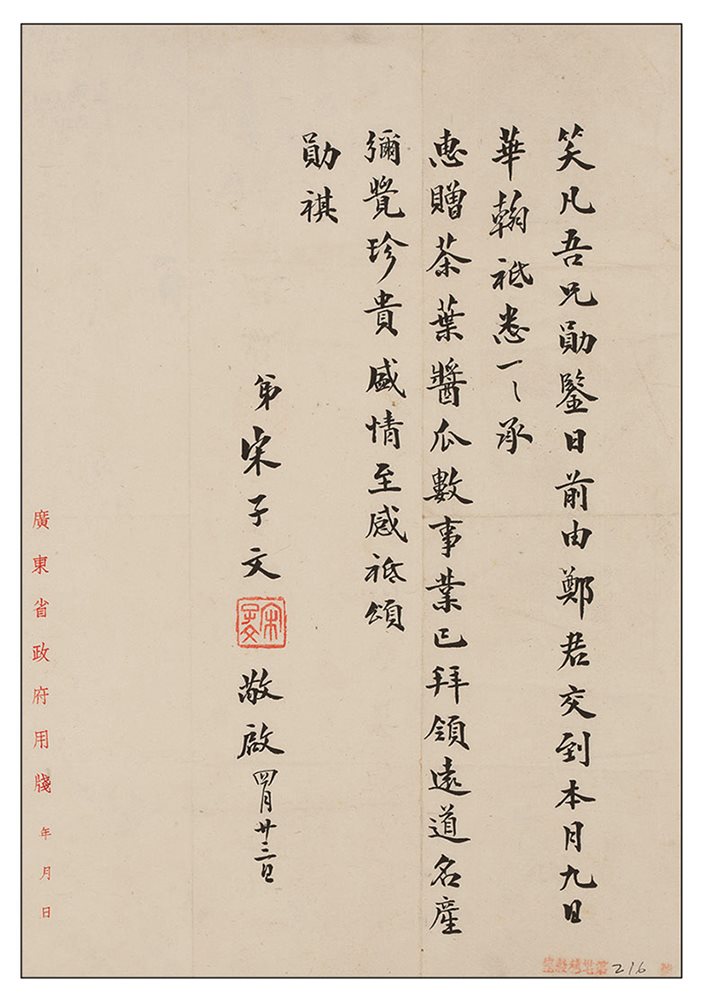 笑凡吾兄勛鑒日前由鄭君交到本月九日
華翰祗悉一一承
惠贈茶葉醬瓜數事業已拜領遠道名產
彌覺珍貴盛情至感祗頌
勛祺
弟宋子文
敬啟四月廿三日
廣東省政府用牋 年 月 日
216